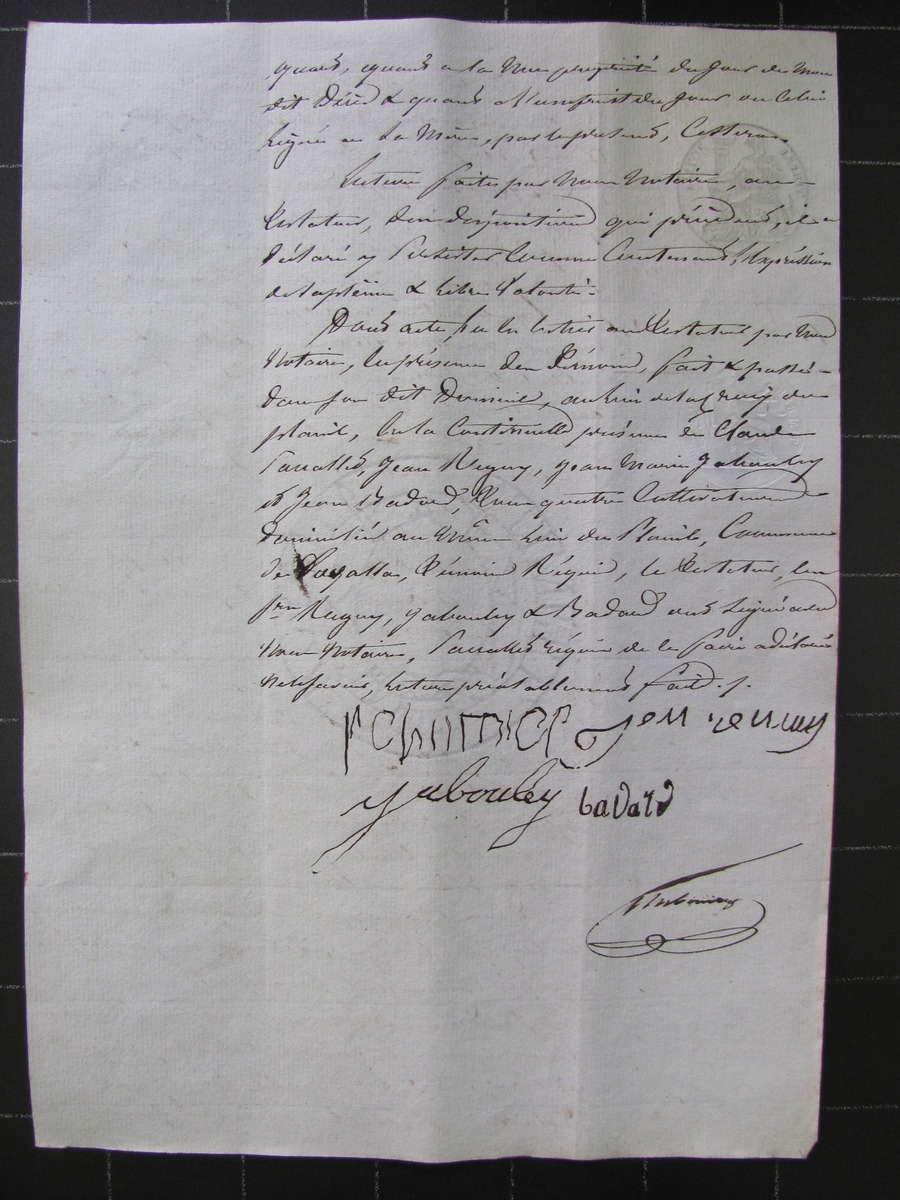 quand, quand a la nue propriété du jour de mon
dit Décès & quand a l'usufruit du jour ou celui
légué a la Mère, par le présent, Cessera.
Lecture faite par nous Notaire, au
testateur, des dispositions qui précèdent, il a
déclaré y persister comme contenant l'expression
de la pleine & libre volonté.
Dont acte, lu en entier au testateur par nous
Notaire, en présence des témoins, fait & passé
dans son dit Domicile, au lieu de la Croix du
planil, en la continuelle présence de Claude
Jean Reguy, Jean Marie Jabouley
et Jean Badard, tous quatre Cultivateurs
domiciliés au même lieu du Planil, Commune
de témoins Requis, le testateur, les
Srs Reguy, Jabouley & Badard ont signé avec
nous Notaire, requis de le faire a déclaré
ne le savoir, lecture préalablement fait.
Jabouley badard